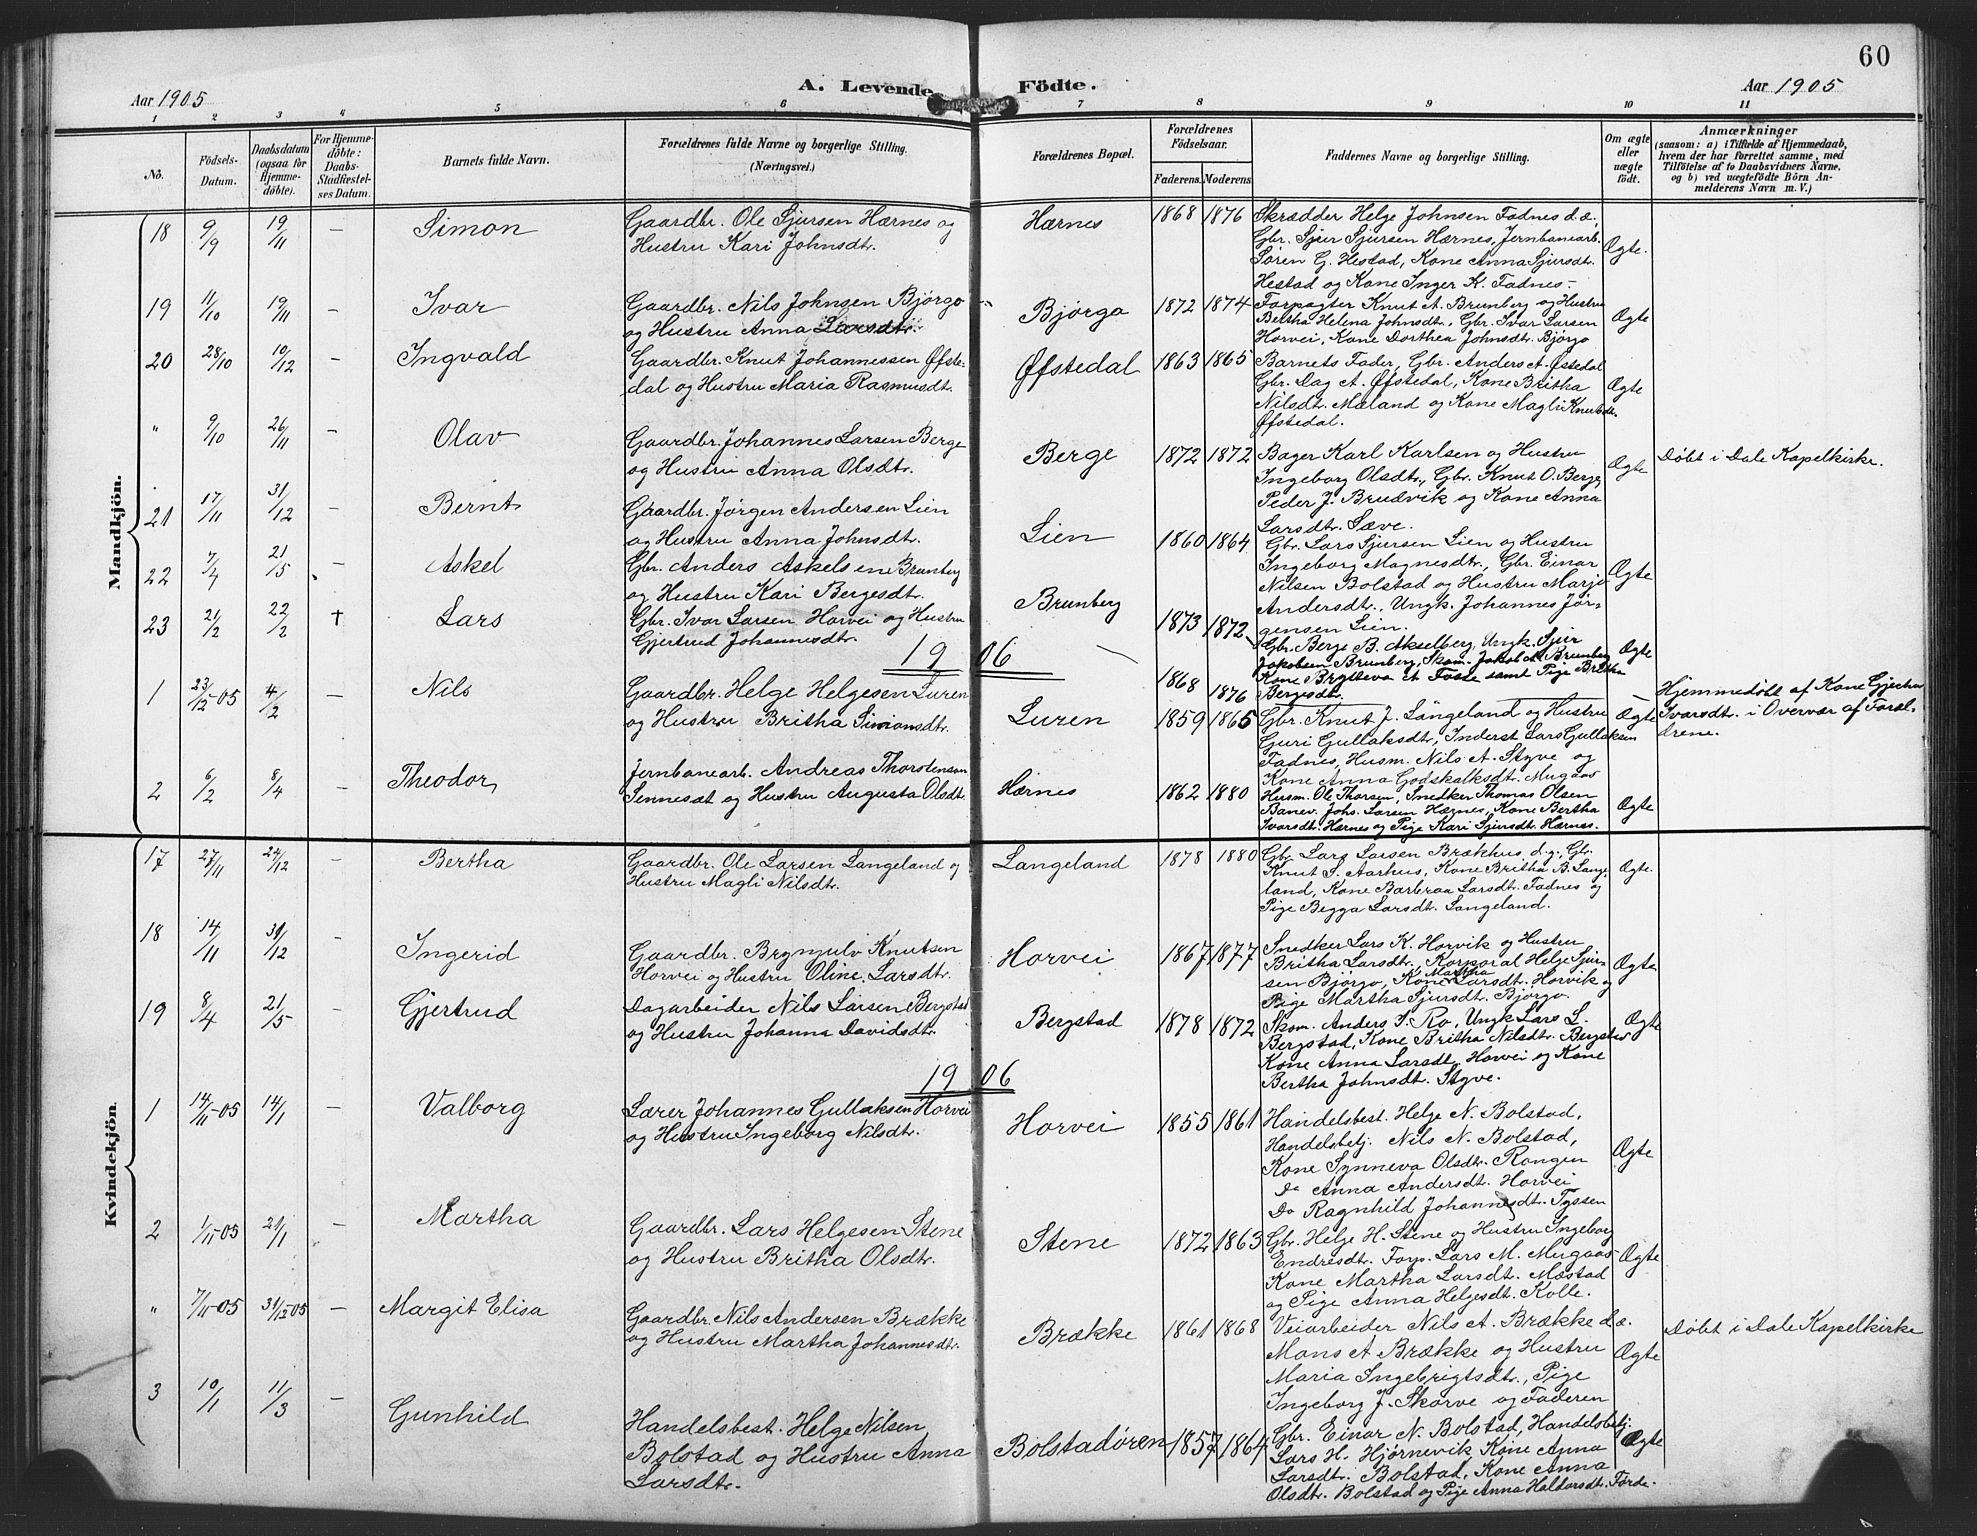 60
A. Levende Födte.
Aar 1905
Aar 1905
1 2 3 4 5 6 7 8 9 10 11
No.
Födsels-Datum.
Daabsdatum (ogsaa for Hjemme-döbte).
For Hjemme-döbte: Daabs-Stadfæstel-ses Datum.
Barnets fulde Navn.
Forældrenes fulde Navne og borgerlige Stilling.
(Næringsvei.)
Forældrenes Bopæl.
Forældrenes Födselsaar.
Faderens. Moderens
Faddernes Navne og borgerlige Stilling.
Om ægte eller uægte födt.
Anmærkninger
(saasom: a) i Tilfælde af Hjemmedaab, hvem der har forrettet samme, med Tilföielse af to Daabsvidners Navne, og b) ved uægtefödte Börn An-melderens Navn m. V.)
Mandkjön.
18 9/9 19/11 – Simon
Gaardbr. Ole Sjursen Hærnes og
Hustru Kari Johnsdt.
Hærnes 1868 1876
Skrædder Helge Johnsen Fadnes d.æ.,
Gbr. Sjur Sjursen Hærnes, Jernbanearb.
Søren G. Hestad, Kone Anna Sjursdt.
Hestad og Kone Inger K. Fadnes –
Ægte.
19 11/10 19/11 – Ivar
Gaardbr. Nils Johnsen Bjørgo
og Hustru Anna Larsdt.
Bjørgo 1872 1874
Forpagter Knut A. Brunberg og Hustru
Bertha Helena Johnsdt., Gbr. Ivar Larsen
Horvei, Kone Dorthea Johnsdt. Bjørgo
Ægte
20 28/10 10/12 – Ingvald
Gaardbr. Knut Johannessen Øfste-
dal og Hustru Maria Rasmusdt.
Øfstedal 1863 1865
Barnets Fader, Gbr. Anders A. Øfstedal
Gbr. Dag A. Øfstedal, Kone Britha
Nilsdt. Mæland og Kone Magli Knutsdt.
Øfstedal.
Ægte
" 9/10 26/11 – Olav
Gaardbr. Johannes Larsen Berge
og Hustru Anna Olsdt.
Berge 1872 1872
Bager Karl Karlsen og Hustru
Ingeborg Olsdt., Gbr. Knut O. Berge,
Peder J. Brudvik og Kone Anna
Larsdt. Sæve.
Ægte
Døbt i Dale Kapelkirke.
21 17/11 31/12 – Bernt
Gaardbr. Jørgen Andersen Lien
og Hustru Anna Johnsdt.
Lien 1860 1864
Gbr. Lars Sjursen Lien og Hustru
Ingeborg Magnesdt., Gbr. Einar
Nilsen Bolstad og Hustru Marjo
Andersdt., Ungk. Johannes Jør-
gensen Lien.
Ægte
22 7/4 21/5 – Askel
Gbr. Anders Askelsen Brunberg
og Hustru Kari Bergesdt.
Brunberg 1873 1872
Gbr. Berge B. Akselberg, Ungk. Sjur
Jakobsen Brunberg, Skom. Jakob A. Brunberg
Kone Brytteva A. Fosse samt Pige Britha
Bergesdt.
Ægte
23 21/2 22/2 † Lars
Gbr. Ivar Larsen Horvei og Hustru
Gjertrud Johannesdt.
1868 1876
1906
1 23/12-05 4/2 – Nils
Gaardbr. Helge Helgesen Luren
og Hustru Britha Simonsdt.
Luren 1859 1865
Gbr. Knut J. Langeland og Hustru
Guri Gullaksdt., Inderst Lars Gullaksen
Fadnes, Husm. Nils A. Styve og
Kone Anna Godskalksdt. Mugaas
Ægte
Hjemmedøbt af Kone Gjertru
Ivarsdt. i Overvær af Foræl-
drene.
2 6/2 8/4 – Theodor
Jernbanearb. Andreas Thorstensen
Sennesæt og Hustru Augusta Olsdt.
Hærnes 1862 1880
Husm. Ole Thorsen, Snedker Thomas Olsen
Banev. Johs. Larsen Hærnes, Kone Bertha
Ivarsdt. Hærnes og Pige Kari Sjursdt. Hærnes.
Ægte
Kvindekjön.
17 27/11 24/12 – Bertha
Gaardbr. Ole Larsen Langeland og
Hustru Magli Nilsdt.
Langeland 1878 1880
Gbr. Lars Larsen Brækhus d.y., Gbr.
Knut S. Aarhus, Kone Britha B. Lange-
land, Kone Barbraa Larsdt. Fadnes og
Pige Begga Larsdt. Langeland.
Ægte.
18 14/11 31/12 – Ingerid
Gaardbr. Brynjulv Knutsen
Horvei og Hustru Oline Larsdt.
Horvei 1867 1877
Snedker Lars K. Horvik og Hustru
Britha Larsdt., Korporal Helge Sjur-
sen Bjørgo, Kone Martha Larsdt. Horvik og
Pige Martha Sjursdt. Bjørgo.
Ægte
19 8/4 21/5 – Gjertrud
Dagarbeider Nils Larsen Bergstad
og Hustru Johanna Davidsdt.
Bergstad 1878 1872
Skom. Anders S. Ro, Ungk Lars L.
Bergstad, Kone Britha Nilsdt. Bergstad
Kone Anna Larsdt. Horvei og Kone
Bertha Johnsdt. Styve.
Ægte
1906
1 14/11-05 14/1 – Valborg
Lærer Johannes Gullaksen Horvei
og Hustru Ingeborg Nilsdt.
Horvei 1855 1861
Handelsbest. Helge N. Bolstad,
Handelsbetj. Nils N. Bolstad,
Kone Synneva Olsdt. Rongen
Do Anna Andersdt. Horvei
Do Ragnhild Johannesdt. Tyssen
Ægte
2 1/11-05 21/1 – Martha
Gaardbr. Lars Helgesen Stene
og Hustru Britha Olsdt.
Stene 1872 1863
Gbr. Helge H. Stene og Hustru Ingeborg
Endresdt. Forp. Lars M. Mugaas
Kone Martha Larsdt. Mæstad
og Pige Anna Helgesdt. Kolle.
Ægte
" 7/11-05 31/12-05 – Margit Elisa
Gaardbr. Nils Andersen Brække
og Hustru Martha Johannesdt.
Brække 1861 1868
Veiarbeider Nils A. Brække d.æ.
Mons A Brække og Hustru
Maria Ingebrigtsdt., Pige
Ingeborg J. Skorve og Faderen
Ægte
Døbt i Dale Kapelkirke
3 10/1 11/3 – Gunhild
Handelsbest. Helge Nilsen
Bolstad og Hustru Anna
Larsdt.
Bolstadøren 1857 1864
Gbr. Einar N. Bolstad, Handelsbetj.
Lars H. Hjørnevik, Kone Anna
Larsdt. Bolstad, Kone Anna
Olsdt. Bolstad og Pige Anna Haldorsdt. Førde.
Ægte